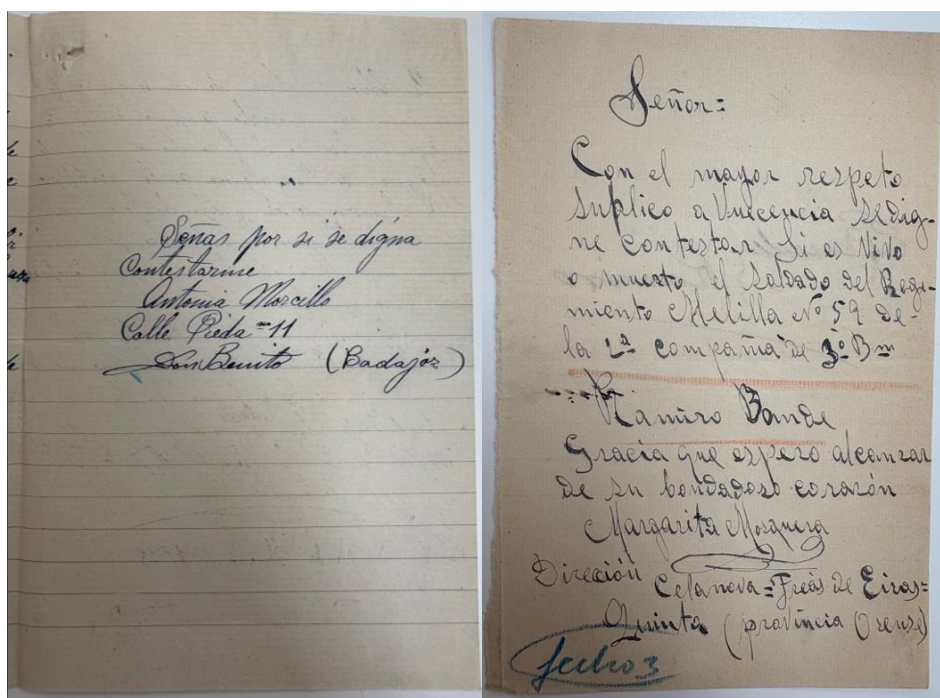 Señas por si se digna
Contestarme
Antonia Morcillo
Calle Pieda = 11
Don Benito (Badajoz)
Señor =
Con el mayor respeto
suplico a Vuecencia se dig-
ne contestar si es vivo
o muerto, el soldado del Regi-
miento Melilla Nº 59 de
la 2ª compañia de 3º Bon
Ramiro Bande
Gracia que espero alcanzar
de su bondadoso corazón
Margarita Mosquera
Direción Celanova = Freás de Eiras =
Quinta (provincia Orense)